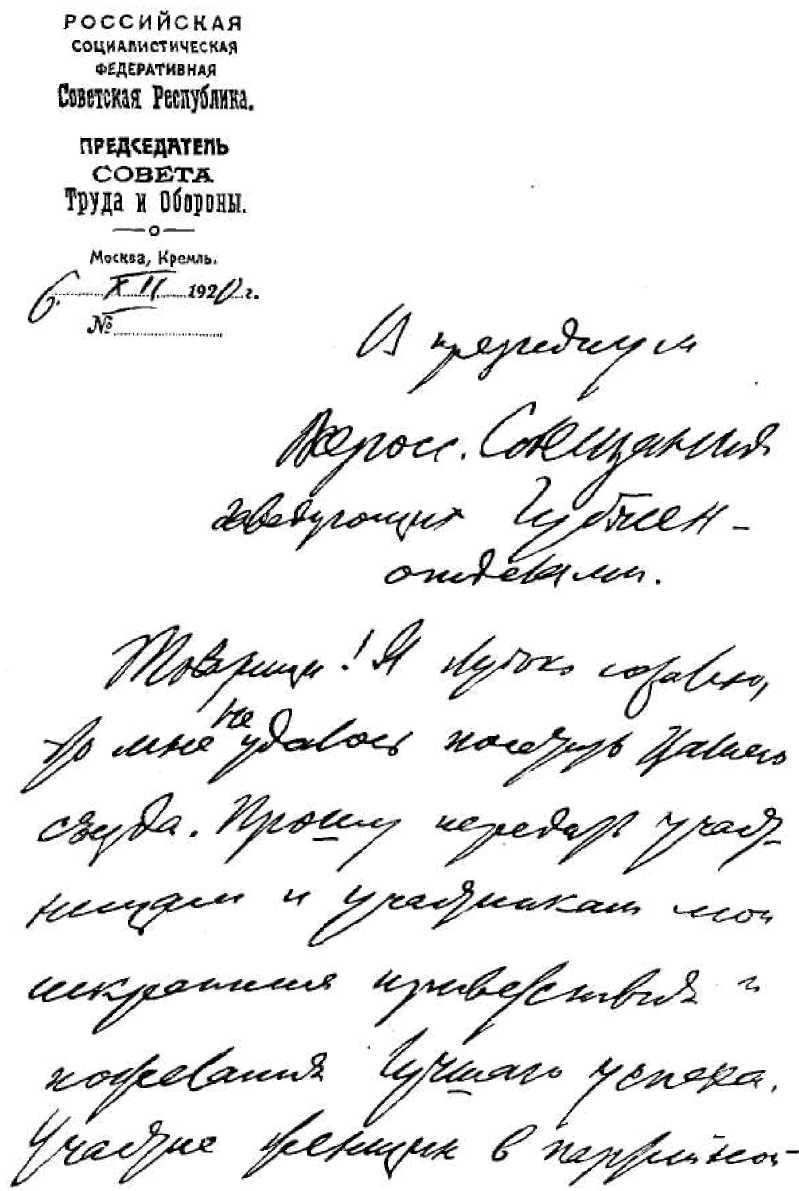 РОССИЙСКАЯ
СОЦИАЛИСТИЧЕСКАЯ
ФЕДЕРАТИВНАЯ
Советская Республика.
ПРЕДСЕДАТЕЛЬ
СОВЕТА
Труда и Обороны.
Москва, Кремль.
6. XII 1920 г.
№
В президиум
Всеросс. Совещания
заведующих Губжен-
отделами.
Товарищи! Я глубоко сожалею,
что мне не удалось посетить Вашего
съезда. Прошу передать участ-
ницам и участникам мои
искренния приветствия и
пожелания лучшаго успеха.
Участие женщин в партийной